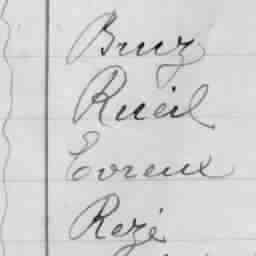 Bruz
Rueil
Evreux
Rezé